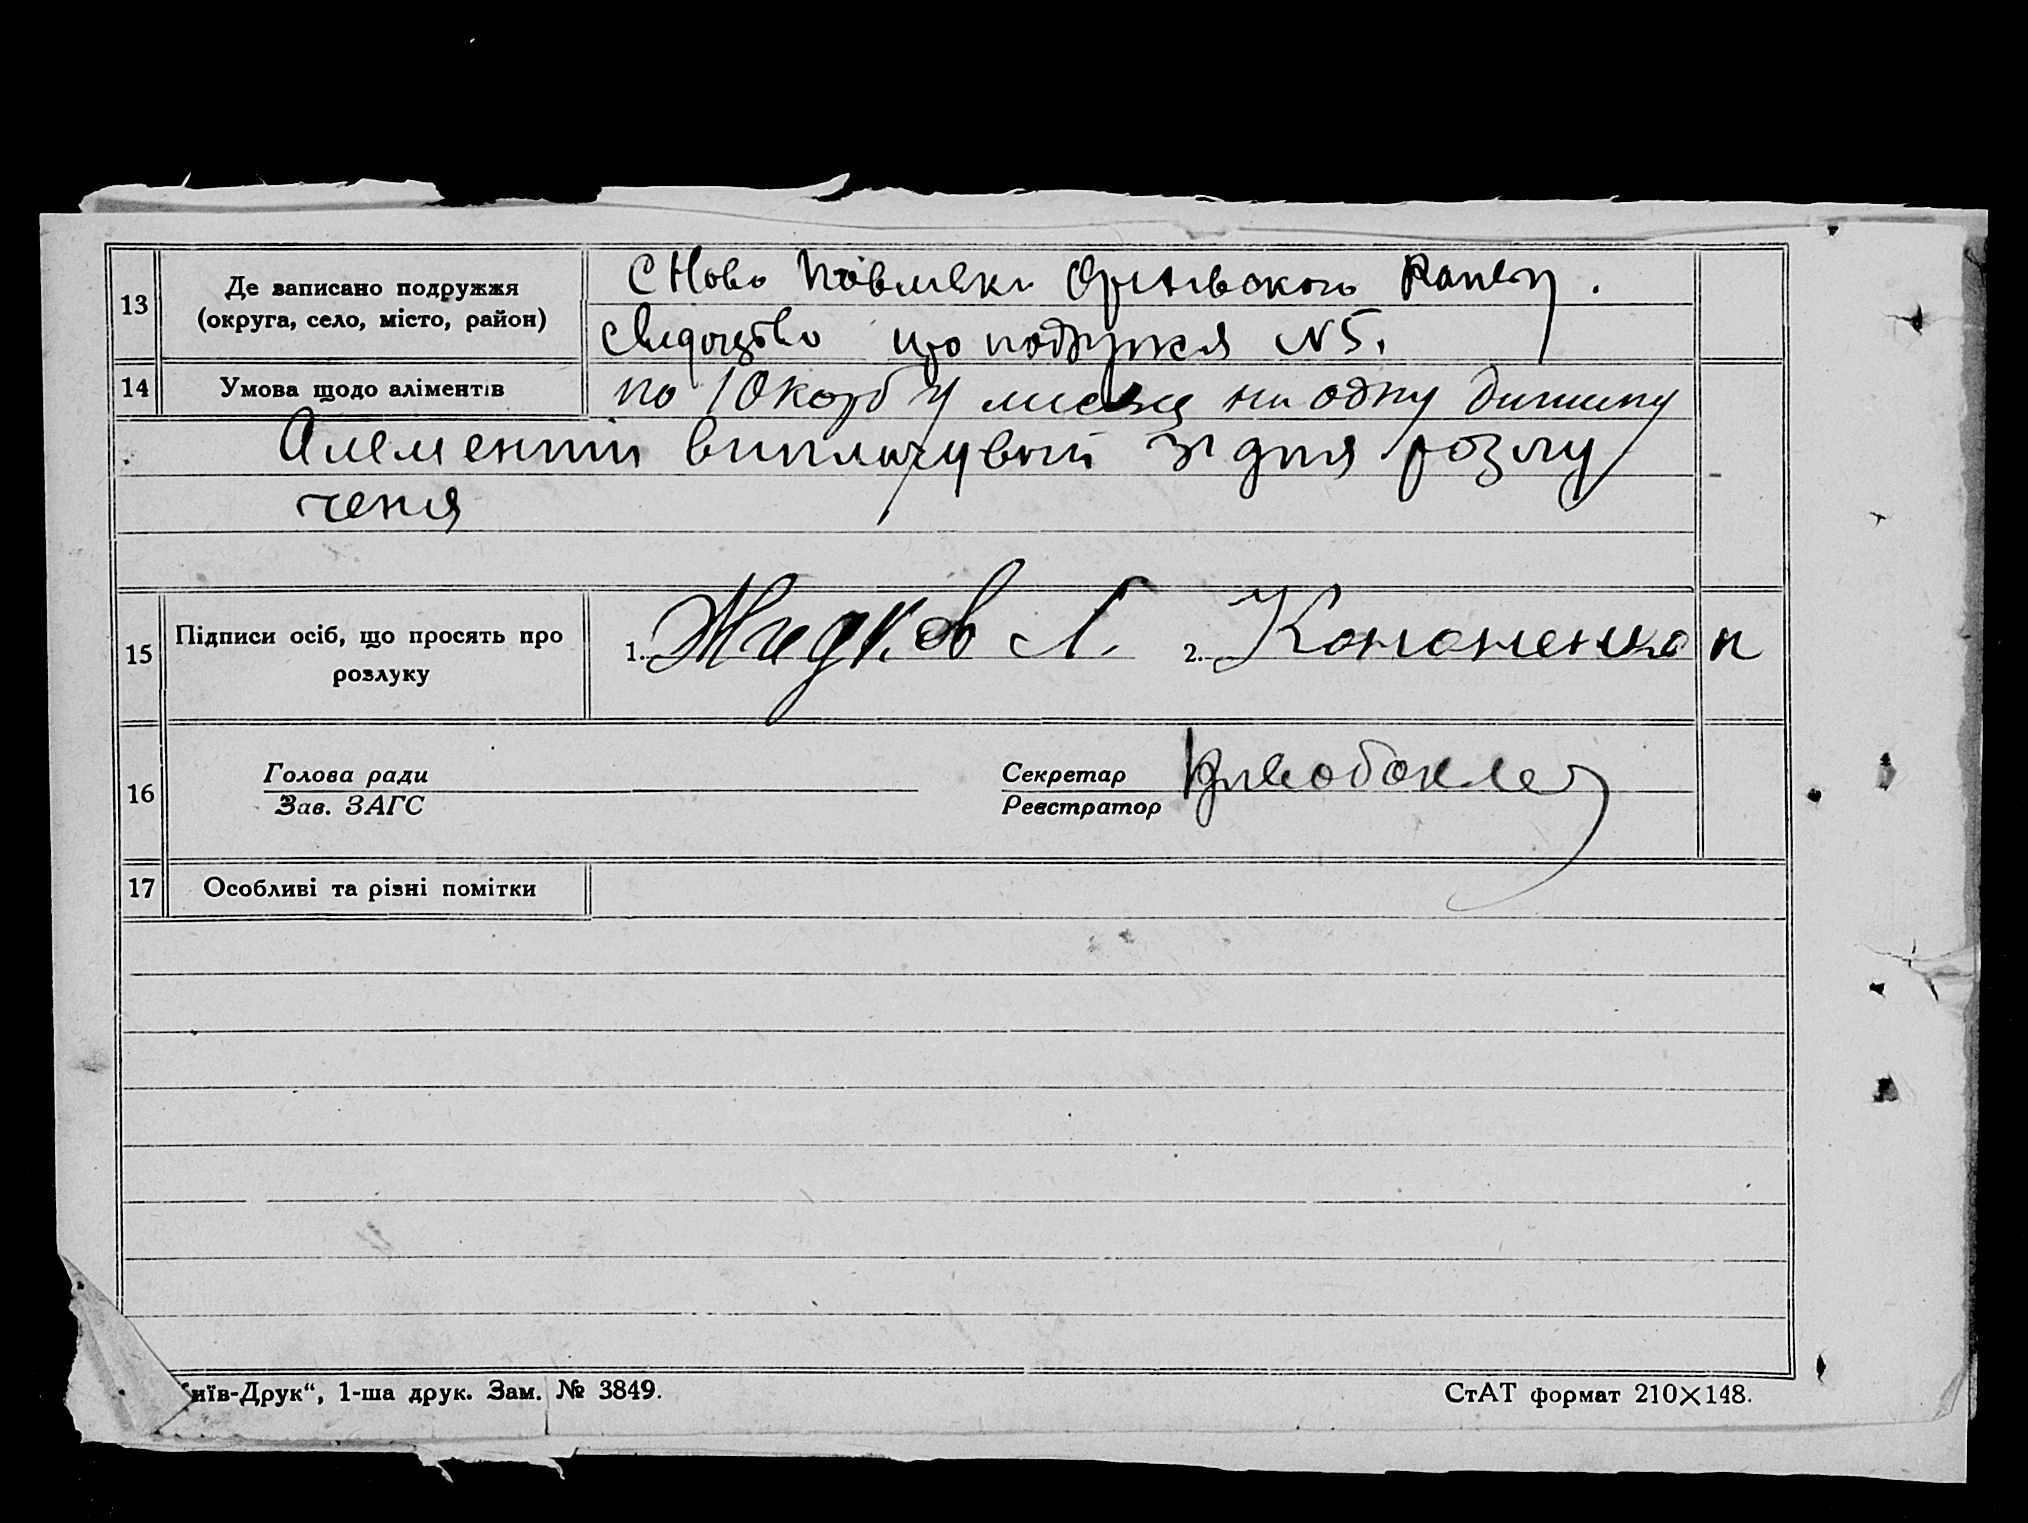 13
Де записано подружжя
(округа, село, місто, район)
С Ново Павлівки
свидоцтво що подружжя N 5.
14
Умова щодо аліментів
по 10 карб у місяц на одну дитину
Алементи виплачувати зі дня розлу
ченя
15
Підписи осіб, що просять про
розлуку
1. Жидков Л. 2. Кононенко П
16
Голова ради
Зав. ЗАГС
Секретар
Реєстратор
17
Особливі та різні помітки
иїв-Друк“, 1-ша друк. Зам. № 3849.
СтАТ формат 210×148.